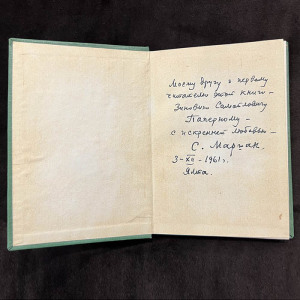 Моему другу и первому
читателю этой книги —
Зиновию Самойловичу
Паперному —
с искренней любовью —
С. Маршак.
3-XII-1961 г.
Ялта.